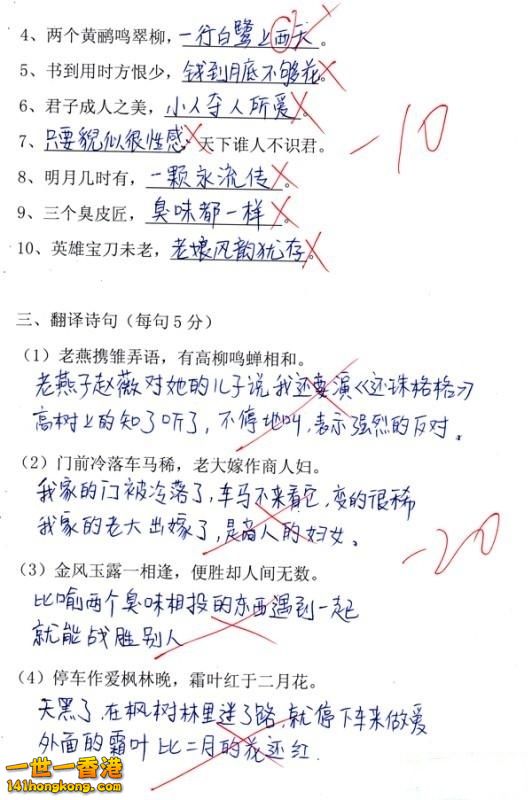 4、两个黄鹂鸣翠柳，一行白鹭上西天。
5、书到用时方恨少，钱到月底不够花。
6、君子成人之美，小人夺人所爱。
7、只要貌似很性感，天下谁人不识君。
8、明月几时有，一颗永流传。
9、三个臭皮匠，臭味都一样。
10、英雄宝刀未老，老娘风韵犹存。
-10
三、翻译诗句（每句5分）
（1）老燕携雏弄语，有高柳鸣蝉相和。
老燕子赵薇对她的儿子说我还要演《还珠格格》
高树上的知了听了，不停地叫，表示强烈的反对。
（2）门前冷落车马稀，老大嫁作商人妇。
我家的门被冷落了，车马不来看它，变的很稀
我家的老大出嫁了，是商人的妇女。
-20
（3）金风玉露一相逢，便胜却人间无数。
比喻两个臭味相投的东西遇到一起
就能战胜别人
（4）停车作爱枫林晚，霜叶红于二月花。
天黑了，在枫树林里迷了路，就停下车来做爱
外面的霜叶比二月的花还红.
一世一香港
141hongkong.com